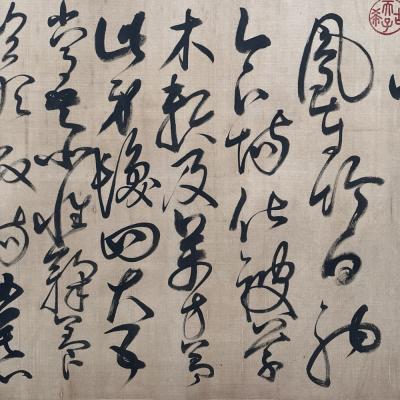 古希天子
鳳在竹白駒
食場化被草
木賴及萬方蓋
此身髮四大五
常恭惟鞠養
豈敢毀傷女慕